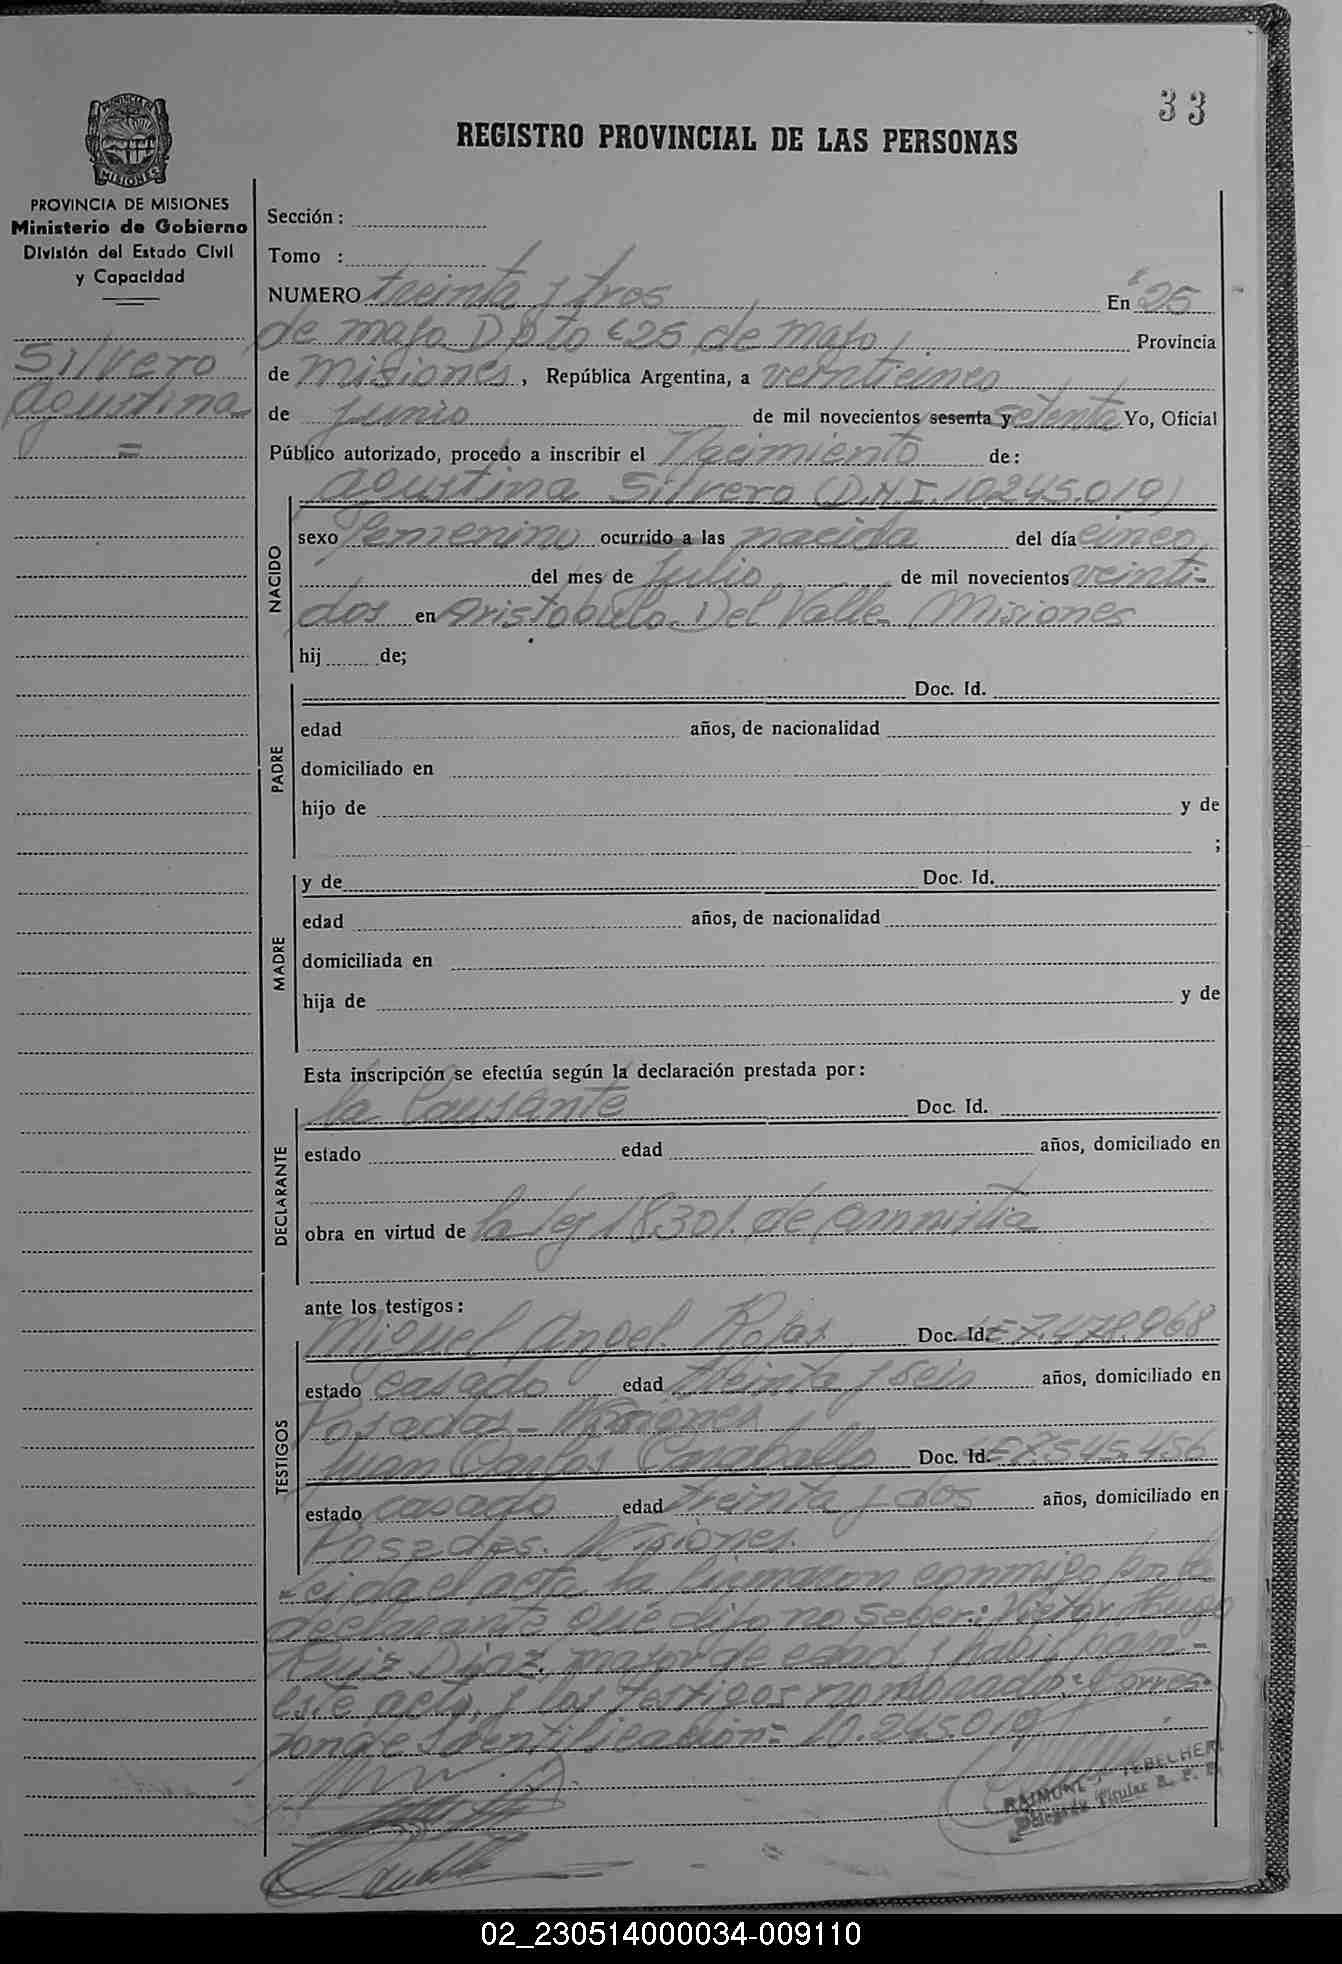 33
REGISTRO PROVINCIAL DE LAS PERSONAS
PROVINCIA DE MISIONES
Ministerio de Gobierno
División del Estado Civil
y Capacidad
Silvero
Agustina
=
Sección :
Tomo :
NUMERO treinta y tres En "25
de mayo Dpto "25 de mayo Provincia
de Misiones, República Argentina, a veinticinco
de junio de mil novecientos sesenta y setenta Yo, Oficial
Público autorizado, procedo a inscribir el Nacimiento de:
NACIDO
Agustina Silvero (D.N.I. 10.245.019)
sexo femenino ocurrido a las nacida del día cinco
del mes de Julio de mil novecientos veinti-
dos en Aristobulo Del Valle Misiones
hij de;
PADRE
Doc. Id.
edad años, de nacionalidad
domiciliado en
hijo de y de
;
MADRE
y de Doc. Id.
edad años, de nacionalidad
domiciliada en
hija de y de
Esta inscripción se efectúa según la declaración prestada por:
DECLARANTE
la Causante Doc. Id.
estado edad años, domiciliado en
obra en virtud de la ley 18.301. de amnistia
ante los testigos:
TESTIGOS
Miguel Angel Rojas Doc. Id. LE 7.478.968
estado casado edad treinta y seis años, domiciliado en
Posadas - Misiones
Juan Carlos Caraballo Doc. Id. LE 7.545.456
estado casado edad treinta y dos años, domiciliado en
Posadas. Misiones.
Leida el acta la firmaron conmigo por la
declarante que dijo no saber: Victor Hugo
Ruiz Diaz, mayor de edad y habil para
este acto, y los testigos nombrados: Corres-
ponde Identificacion: 10.245.019
RAIMUNDO TEBELHER
Delegado Titular R. P. P.
02_230514000034-009110